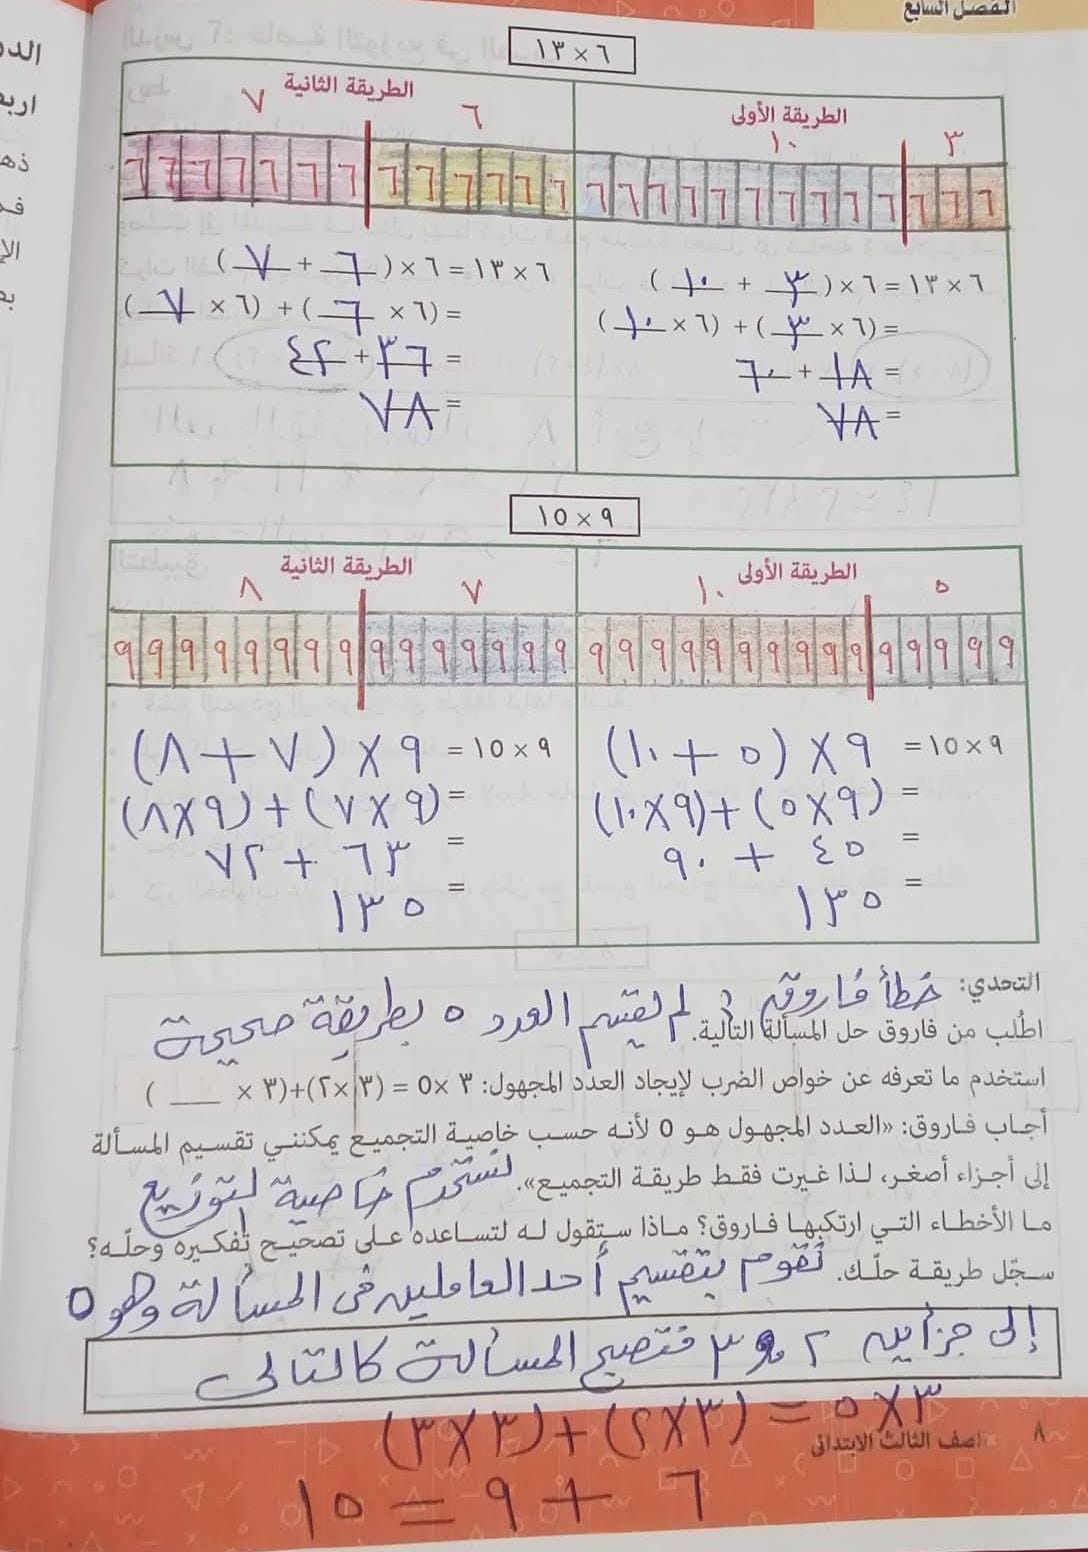 الفصل السابع
٦ × ١٣
الطريقة الأولى
٣ ١٠
٦ ٦ ٦ ٦ ٦ ٦ ٦ ٦ ٦ ٦ ٦ ٦ ٦
٦ × ١٣ = ٦ × (٣ + ١٠)
= (٦ × ٣) + (٦ × ١٠)
= ١٨ + ٦٠
= ٧٨
الطريقة الثانية
٦ ٧
٦ ٦ ٦ ٦ ٦ ٦ ٦ ٦ ٦ ٦ ٦ ٦ ٦
٦ × ١٣ = ٦ × (٦ + ٧)
= (٦ × ٦) + (٦ × ٧)
= ٣٦ + ٤٢
= ٧٨
٩ × ١٥
الطريقة الأولى
٥ ١٠
٩ ٩ ٩ ٩ ٩ ٩ ٩ ٩ ٩ ٩ ٩ ٩ ٩ ٩ ٩
٩ × ١٥ = ٩ × (٥ + ١٠)
= (٩ × ٥) + (٩ × ١٠)
= ٤٥ + ٩٠
= ١٣٥
الطريقة الثانية
٧ ٨
٩ ٩ ٩ ٩ ٩ ٩ ٩ ٩ ٩ ٩ ٩ ٩ ٩ ٩ ٩
٩ × ١٥ = ٩ × (٧ + ٨)
= (٩ × ٧) + (٩ × ٨)
= ٦٣ + ٧٢
= ١٣٥
التحدي: خطأ فاروق : لم يقسم العدد ٥ بطريقة صحيحة
اطلب من فاروق حل المسألة التالية.
استخدم ما تعرفه عن خواص الضرب لإيجاد العدد المجهول: ٣ × ٥ = (٣ × ٢) + (٣ × ___ )
أجاب فاروق: «العدد المجهول هو ٥ لأنه حسب خاصية التجميع يمكنني تقسيم المسألة
إلى أجزاء أصغر، لذا غيرت فقط طريقة التجميع». نستخدم خاصية التوزيع
ما الأخطاء التي ارتكبها فاروق؟ ماذا ستقول له لتساعده على تصحيح تفكيره وحلّه؟
سجّل طريقة حلّك. نقوم بتقسيم أحد العاملين فى المسألة وهو ٥
إلى جزأين ٢ و ٣ فتصبح المسألة كالتالى
٣ × ٥ = (٣ × ٢) + (٣ × ٣)
٦ + ٩ = ١٥
٨ الصف الثالث الابتدائى